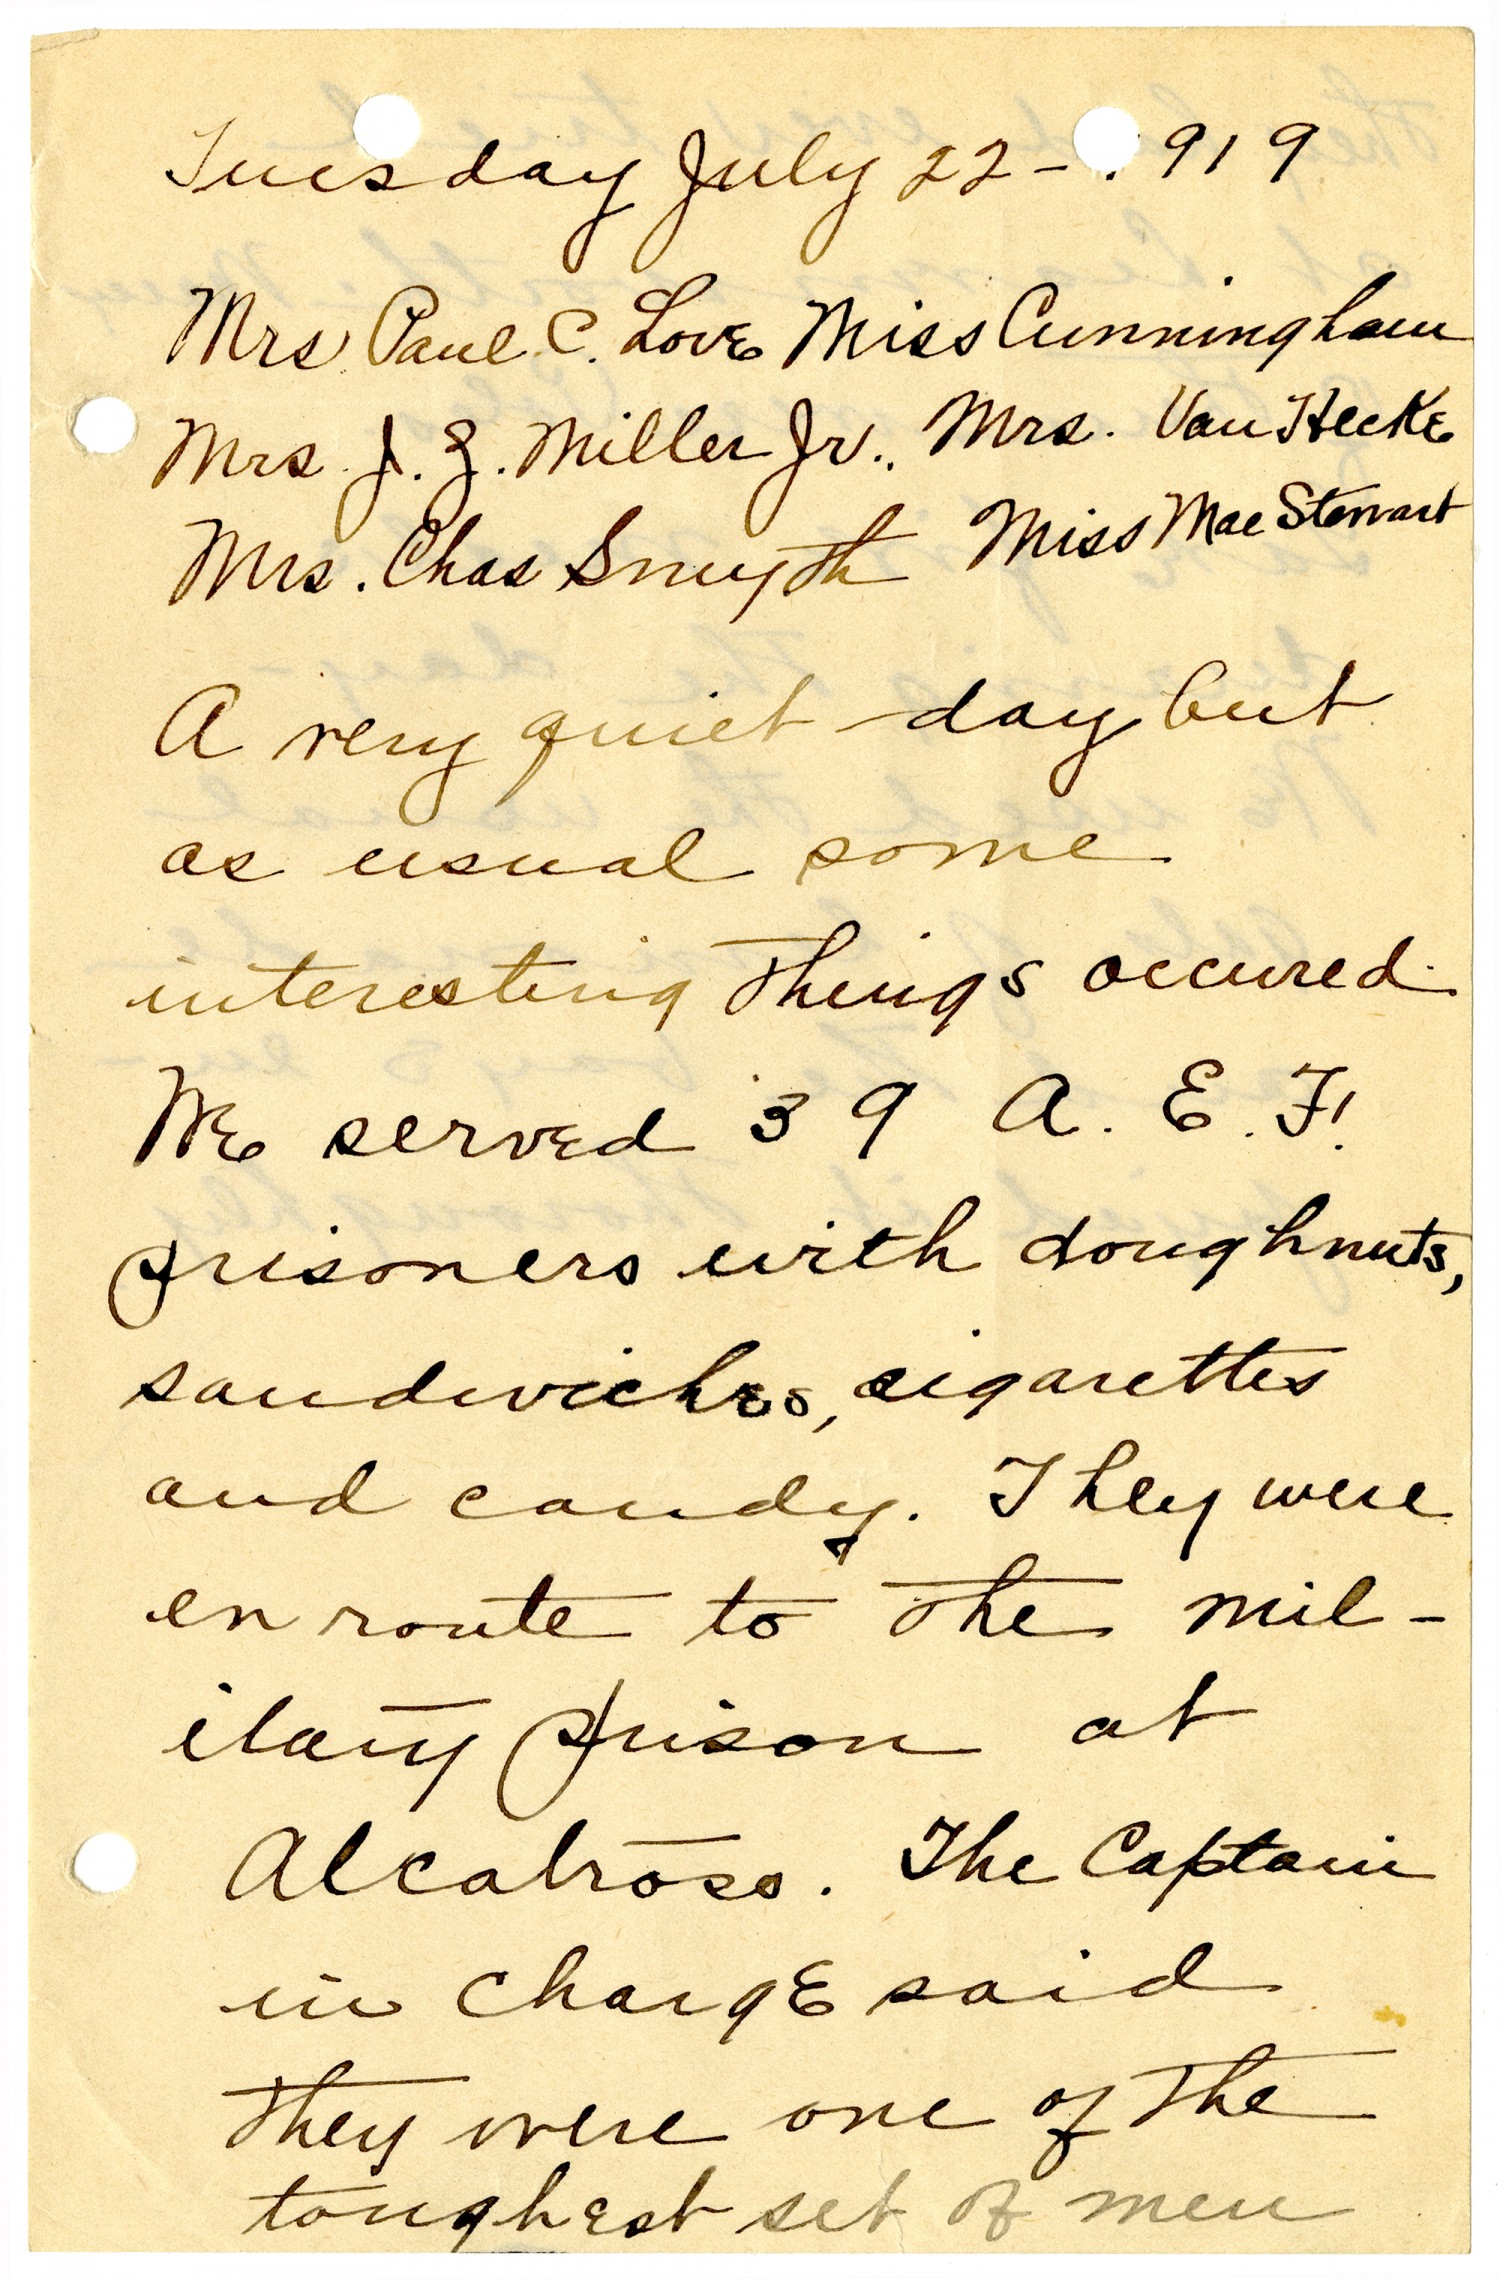 Tuesday July 22 - 1919
Mrs Paul C. Love Miss Cunningham
Mrs. J. Z. Miller Jr., Mrs. Van Hecke
Mrs. Chas Smyth Miss Mae Stewart
A very quiet day but
as usual some
interesting things occured.
We served 39 A. E. F.
prisoners with doughnuts,
sandwiches, cigarettes
and candy. They were
en route to the mil-
itary prison at
Alcatraso. The Captain
in charge said
they were one of the
toughest set of men